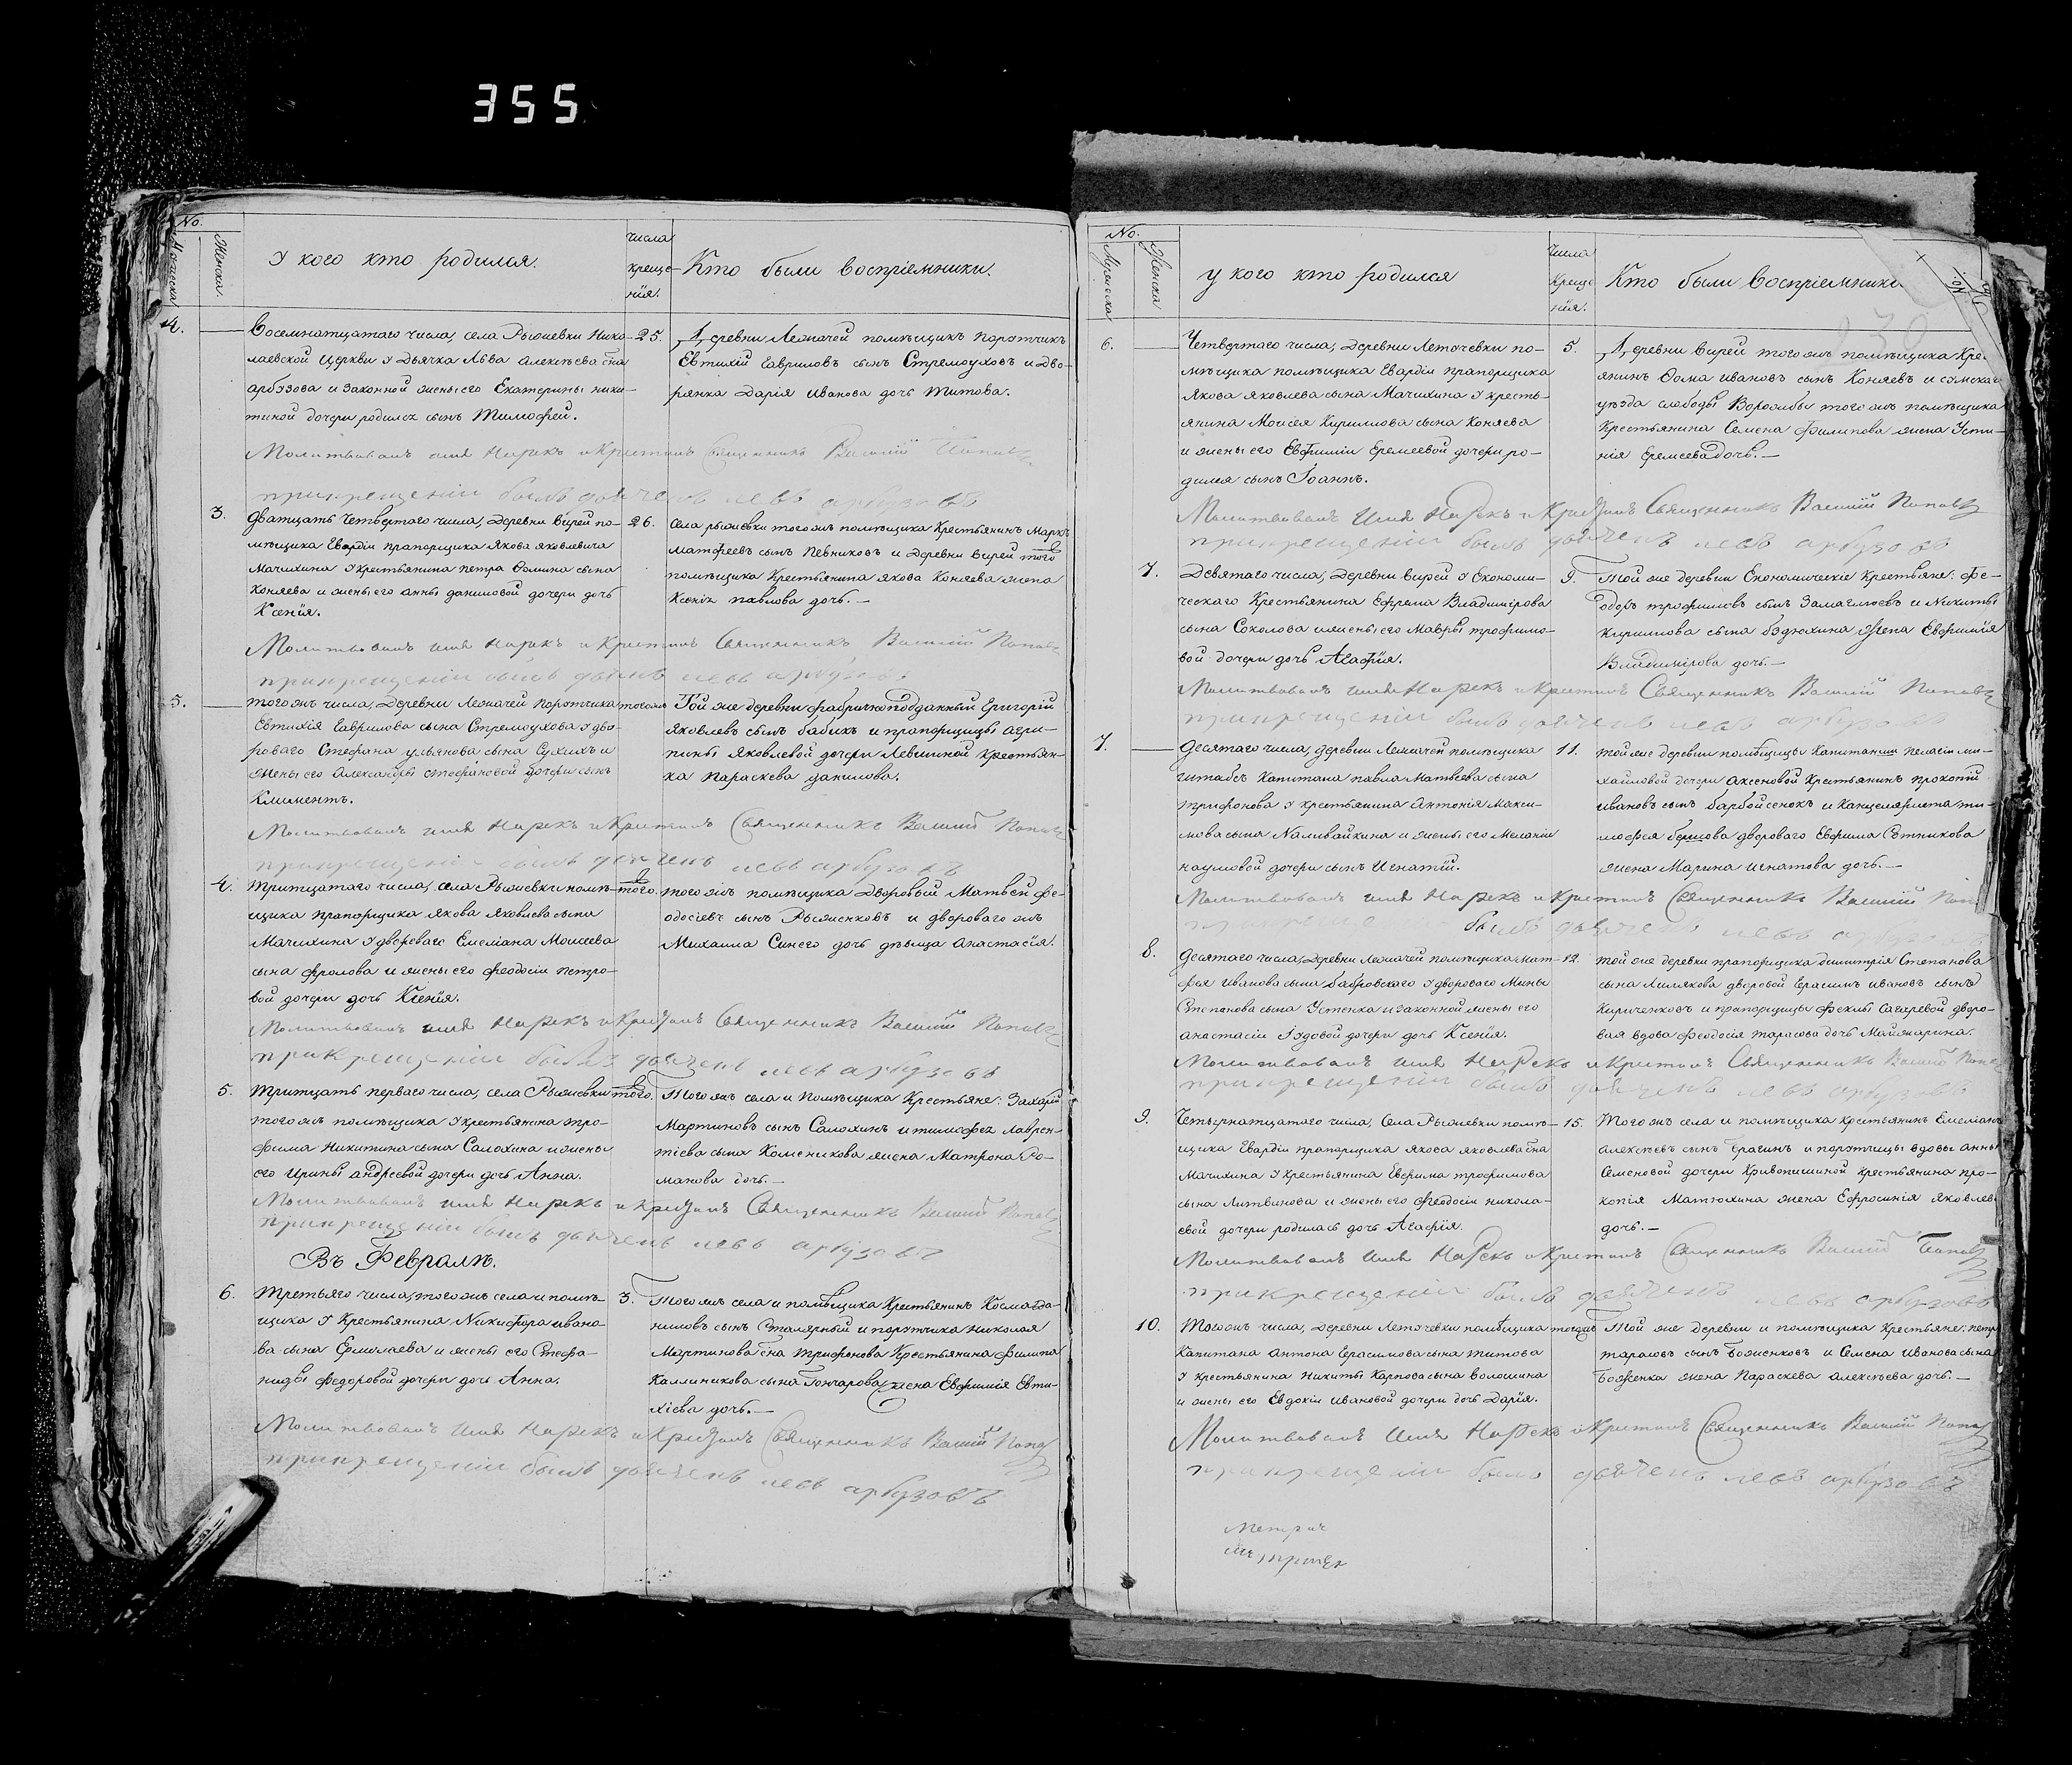 355
No.
Мужеска
Женска
У кого кто родился.
числа
креще-
нія.
Кто были восприемники.
4.
Восемнатцатаго числа, села Рыжевки Нико-
лаевской Церкви У Дьячка Льва Алексѣева сна
арбузова и законной жены его Екатерины ники-
тиной дочери родился сынъ Тимофей.
25.
Деревни Лежачей помѣщикъ порутчикъ
Евтихій Гавриловъ сынъ Стремоуховъ и дво-
рянка Дарія Иванова дочь Титова.
Молитвовалъ имя Нарекъ и Крестилъ Священникъ Василій Поповъ
при крещеніи былъ дьячекъ левъ арбузовъ
3.
Дватцать Четвертаго числа, Деревни вирей по-
мѣщика Гвардіи прапорщика Якова Яковлевича
Мачихина У Крестьянина петра Фомина сына
Коняева и жены его анны даниловой дочери дочь
Ксенія.
26.
Села рыжевки тогожъ помѣщика Крестьянинъ Маркъ
Матфеевъ сынъ Певниковъ и Деревни вирей того
помѣщика Крестьянина якова Коняева жена
Ксенія павлова дочь.—
Молитвовалъ имя Нарекъ и Крестилъ Священникъ Василій Поповъ
при крещеніи былъ дьячекъ левъ арбузовъ
5.
тогожъ числа, Деревни Лежачей порутчика
Евтихія Гаврилова сына Стремоухова У дво-
роваго Стефана ульянова сына Сухихъ и
жены его Александры стефановой дочери сынъ
Климентъ.
тогожъ
Той же деревни фабричноподданный Григорій
Яковлевъ сынъ бабикъ и прапорщицы агри-
пины Яковлевой дочери Левшиной Крестьян-
ка Параскева данилова.
Молитвовалъ имя Нарекъ и Крестилъ Священникъ Василій Поповъ
при крещеніи былъ дьячекъ левъ арбузовъ
4.
Тритцатаго числа, села Рыжевки помѣ-
щика прапорщика якова Яковлева сына
Мачихина У двороваго Емеліана Моисеева
сына Фролова и жены его Феодосіи петро-
вой дочери дочь Ксенія.
того.
того жъ помѣщика Дворовый Матвей Фе-
одосіевъ сынъ Рыженковъ и двороваго жъ
Михаила Синего дочь дѣвица Анастасія.
Молитвовалъ имя Нарекъ и Крестилъ Священникъ Василій Поповъ
при крещеніи былъ дьячекъ левъ арбузовъ
5.
Тритцать перваго числа, села Рыжевки
тогожъ помѣщика У крестьянина тро-
фима Никитина сына Салохина и жены
его Ирины андреевой дочери дочь Анна.
того.
Того жъ села и Помѣщика Крестьяне: Захарій
Мартиновъ сынъ Салохинъ и тимофея лаврен-
тіева сына Коменикова жена Матрона Ро-
манова дочь.—
Молитвовалъ имя Нарекъ и Крестилъ Священникъ Василій Поповъ
при крещеніи былъ дьячекъ левъ арбузовъ
Въ Февралѣ.
6.
Третьяго числа, тогожъ села и помѣ-
щика У Крестьянина Никифора ивано-
ва сына Ермолаева и жены его Стефа-
ниды Федоровой дочери дочь Анна.
3.
Того жъ села и помѣщика Крестьянинъ Косма да-
ниловъ сынъ Столярный и порутчика николая
Мартинова сна Трифонова Крестьянина филипа
Каллиникова сына Гончарова жена Евфимія Евти-
хіева дочь.—
Молитвовалъ имя Нарекъ и Крестилъ Священникъ Василій Поповъ
при крещеніи былъ дьячекъ левъ арбузовъ
No.
Мужеска
Женска
У кого кто родился
Числа
Креще
нія.
Кто были восприемники
6.
Четвертаго числа, Деревни Леточевки по-
мѣщика помѣщика Гвардіи прапорщика
Якова Яковлева сына Мачихина У кресть-
янина Моисея Кирилова сына Коняева
и жены его Евфиміи Еремеевой дочери ро-
дился сынъ Іоаннъ.
5.
Деревни вирей того жъ помѣщика Кре-
янинъ Фома ивановъ сынъ Коняевъ и сумскаго
уѣзда слободы Ворожбы того жъ помѣщика
Крестьянина Семена Филипова жена Усти-
нія Еремеева дочь.—
Молитвовалъ Имя Нарекъ и Крестилъ Священникъ Василій Поповъ
при крещеніи былъ дьячекъ левъ арбузовъ
7.
Девятаго числа, Деревни вирей У Економи-
ческаго Крестьянина Ефрема Владимірова
сына Соколова и жены его Мавры трофимо-
вой дочери дочь Агафія.
9.
Той же деревни Економическіе Крестьяне: Фе-
одоръ трофимовъ сынъ и Никиты
Кирилова сына жена Евфимія
Владимірова дочь.—
Молитвовалъ имя Нарекъ и Крестилъ Священникъ Василій Поповъ
при крещеніи былъ дьячекъ левъ арбузовъ
7.
Десятаго числа, деревни Лежачей помѣщика
штабсъ Капитана павла Матвеева сына
трифонова У крестьянина Антонія Макси-
мова сына Наливайкина и жены его Меланіи
наумовой дочери сынъ Игнатій.
11.
той же деревни помѣщицы Капитанши пелагіи ми-
хайловой дочери Аксеновой Крестьянинъ прокопій
ивановъ сынъ барбойсенокъ и канцеляриста ти-
мофея борисова двороваго Евфима Сотникова
жена Марина игнатова дочь.—
Молитвовалъ имя Нарекъ и крестилъ Священникъ Василій Поп
при креще былъ дьячекъ левъ арбузовъ
8.
Десятаго числа, Деревни Лежачей помѣщика Мат-
фея Иванова сына бабровскаго У двороваго Мины
Степанова сына Устенка и законной жены его
анастасіи Іудовой дочери дочь Ксенія.
12.
той же деревни прапорщика димитрія Степанова
сына дворовой Герасимъ ивановъ сынъ
Кириченковъ и прапорщицы Феклы Сагаревой дворо-
вая вдова Феодосія тарасова дочь.
Молитвовалъ имя Нарекъ и крестилъ Священникъ Василій Поповъ
при крещеніи былъ дьячекъ левъ арбузовъ
9.
Четырнатцатаго числа, Села Рыжевки помѣ-
щика Гвардіи прапорщика якова яковлева сна
Мачихина У Крестьянина Евфима трофимова
сына Литвинова и жены его Феодосіи никола-
евой дочери родилась дочь Агафія.
15.
Тогожъ села и помѣщика Крестьянинъ Емеліанъ
Алексѣевъ сынъ Брагинъ и порутчицы вдовы анны
Семеновой дочери Кривопишиной Крестьянина про-
копія Матюхина жена Ефросинія Яковлев
дочь.—
Молитвовалъ имя Нарекъ и Крестилъ Священникъ Василій Поповъ
при крещеніи былъ дьячекъ левъ арбузовъ
10.
Тогожъ числа, Деревни Леточевки помѣщика
Капитана Антона Герасимова сына титова
У крестьянина Никиты Карпова сына волошина
и жены его Евдокіи ивановой дочери дочь Дарія.
тогожъ
Той же Деревни и помѣщика Крестьяне: петр
тарасовъ сынъ Боженковъ и Семена Иванова сына
Боженка жена Параскева алексѣева дочь.—
Молитвовалъ имя Нарекъ и Крестилъ Священникъ Василій Поповъ
при крещеніи былъ дьячекъ левъ арбузовъ
Метрич